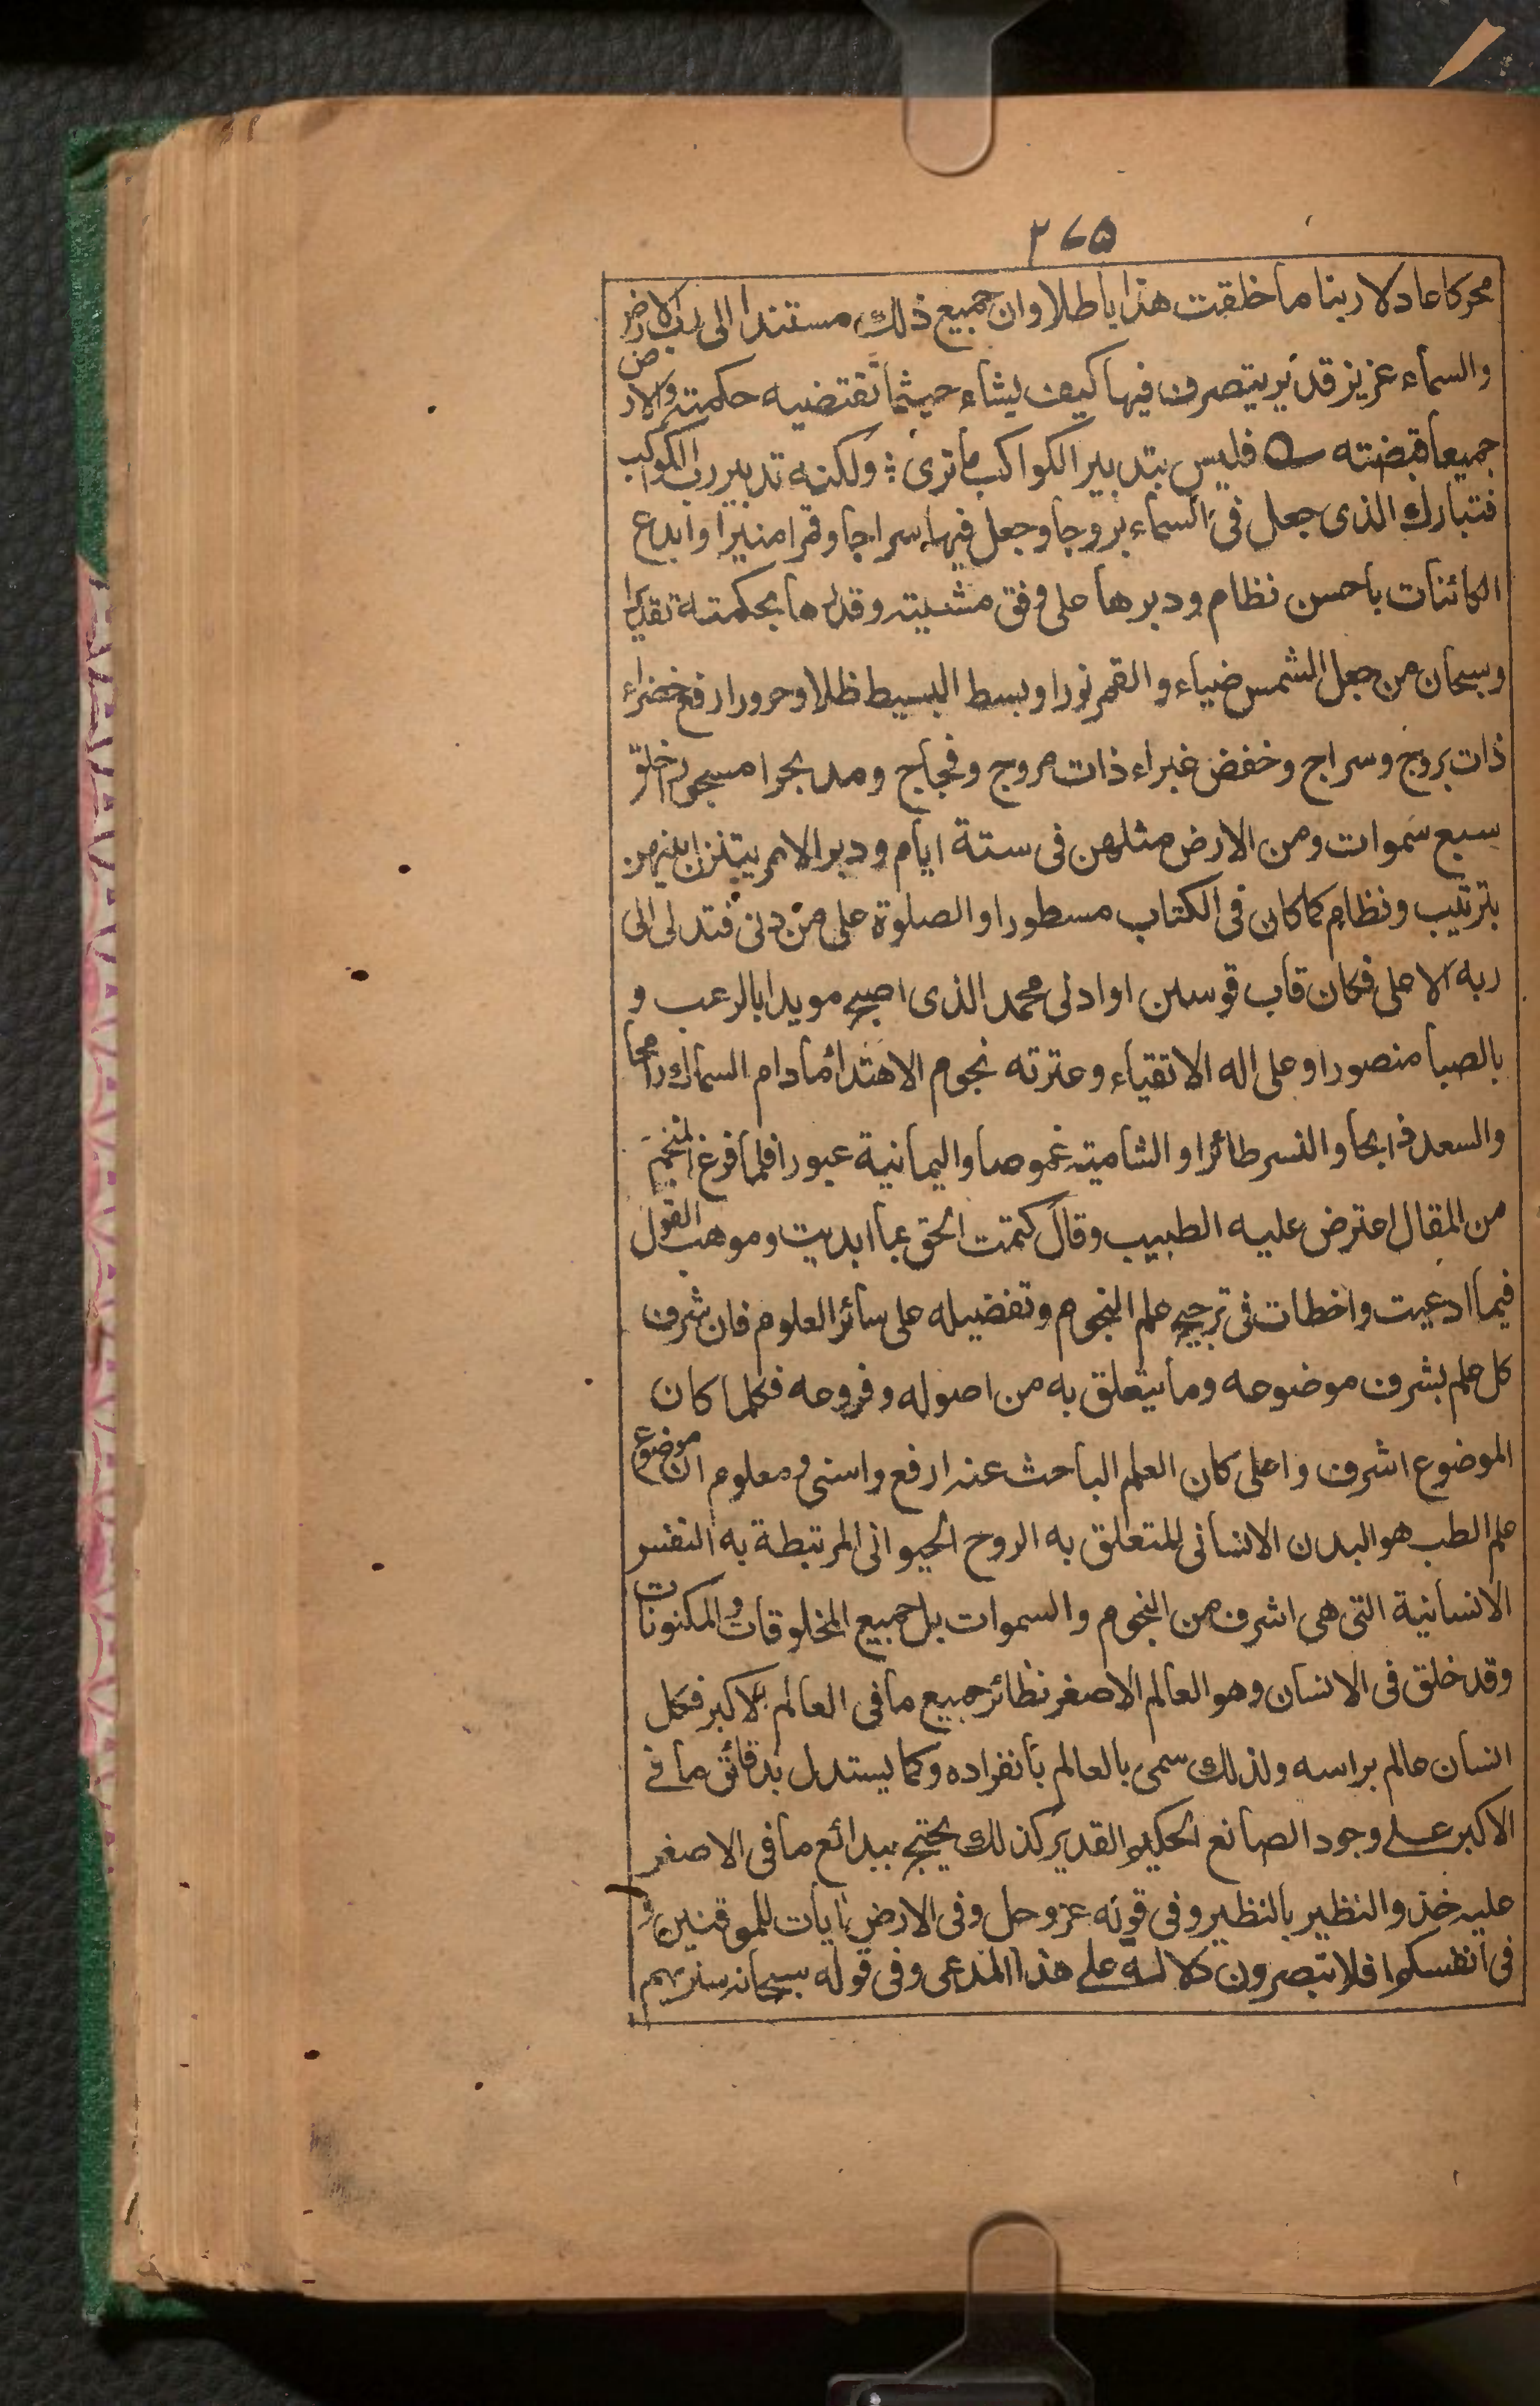 ٢٦٥
محركا عادلا ربنا ما خلقت هذا باطلا وان جميع ذلك مستندا الى رب الارض
والسماء عزيز قدير يتصرف فيها كيف يشاء حيثما تقتضيه حكمته والارض
جميعا قبضته فليس بتدبير الكواكب ما ترى ؛ ولكنه تدبير رب الكواكب
فتبارك الذى جعل فى السماء بروجا وجعل فيها سراجا وقمرا منيرا وابدع
الكائنات باحسن نظام ودبرها على وفق مشيته وقدرها بحكمته تقديرا
وسبحان من جعل الشمس ضياء والقمر نورا وبسط البسيط ظلا وحرورا رفع خضراء
ذات بروج وسراج وخفض غبراء ذات مروج وفجاج ومد بحرا مسجورا خلق
سبع سموات ومن الارض مثلهن فى ستة ايام ودبر الامر يتنزل بينهن
بترتيب ونظام كما كان فى الكتاب مسطورا والصلوة على من دنى فتدلى الى
ربه الاعلى فكان قاب قوسين او ادنى محمد الذى اصبح مويدا بالرعب و
بالصبا منصورا وعلى اله الاتقياء وعترته نجوم الاهتداء ما دام السماك رامحا
والسعد ذابحا والنسر طائرا والشامية غموصا واليمانية عبورا فلما فرغ المنجم
من المقال اعترض عليه الطبيب وقال كتمت الحق بما ابديت وموهت القول
فيما ادعيت واخطات فى ترجيح علم النجوم وتفضيله على سائر العلوم فان شرف
كل علم بشرف موضوعه وما يتعلق به من اصوله وفروعه فكلما كان
الموضوع اشرف واعلى كان العلم الباحث عنه ارفع واسنى ومعلوم ان موضوع
علم الطب هو البدن الانسانى المتعلق به الروح الحيوانى المرتبطة به النفس
الانسانية التى هى اشرف من النجوم والسموات بل جميع المخلوقات والمكنونات
وقد خلق فى الانسان وهو العالم الاصغر نظائر جميع ما فى العالم الاكبر فكل
انسان عالم براسه ولذلك سمى بالعالم بانفراده وكما يستدل بدقائق ما فى
الاكبر على وجود الصانع الحكيم القدير كذلك يحتج ببدائع ما فى الاصغر
عليه خذو النظير بالنظير وفى قوله عز وجل وفى الارض ايات للموقنين و
فى انفسكم افلا تبصرون دلالة على هذا المدعى وفى قوله سبحانه سنريهم